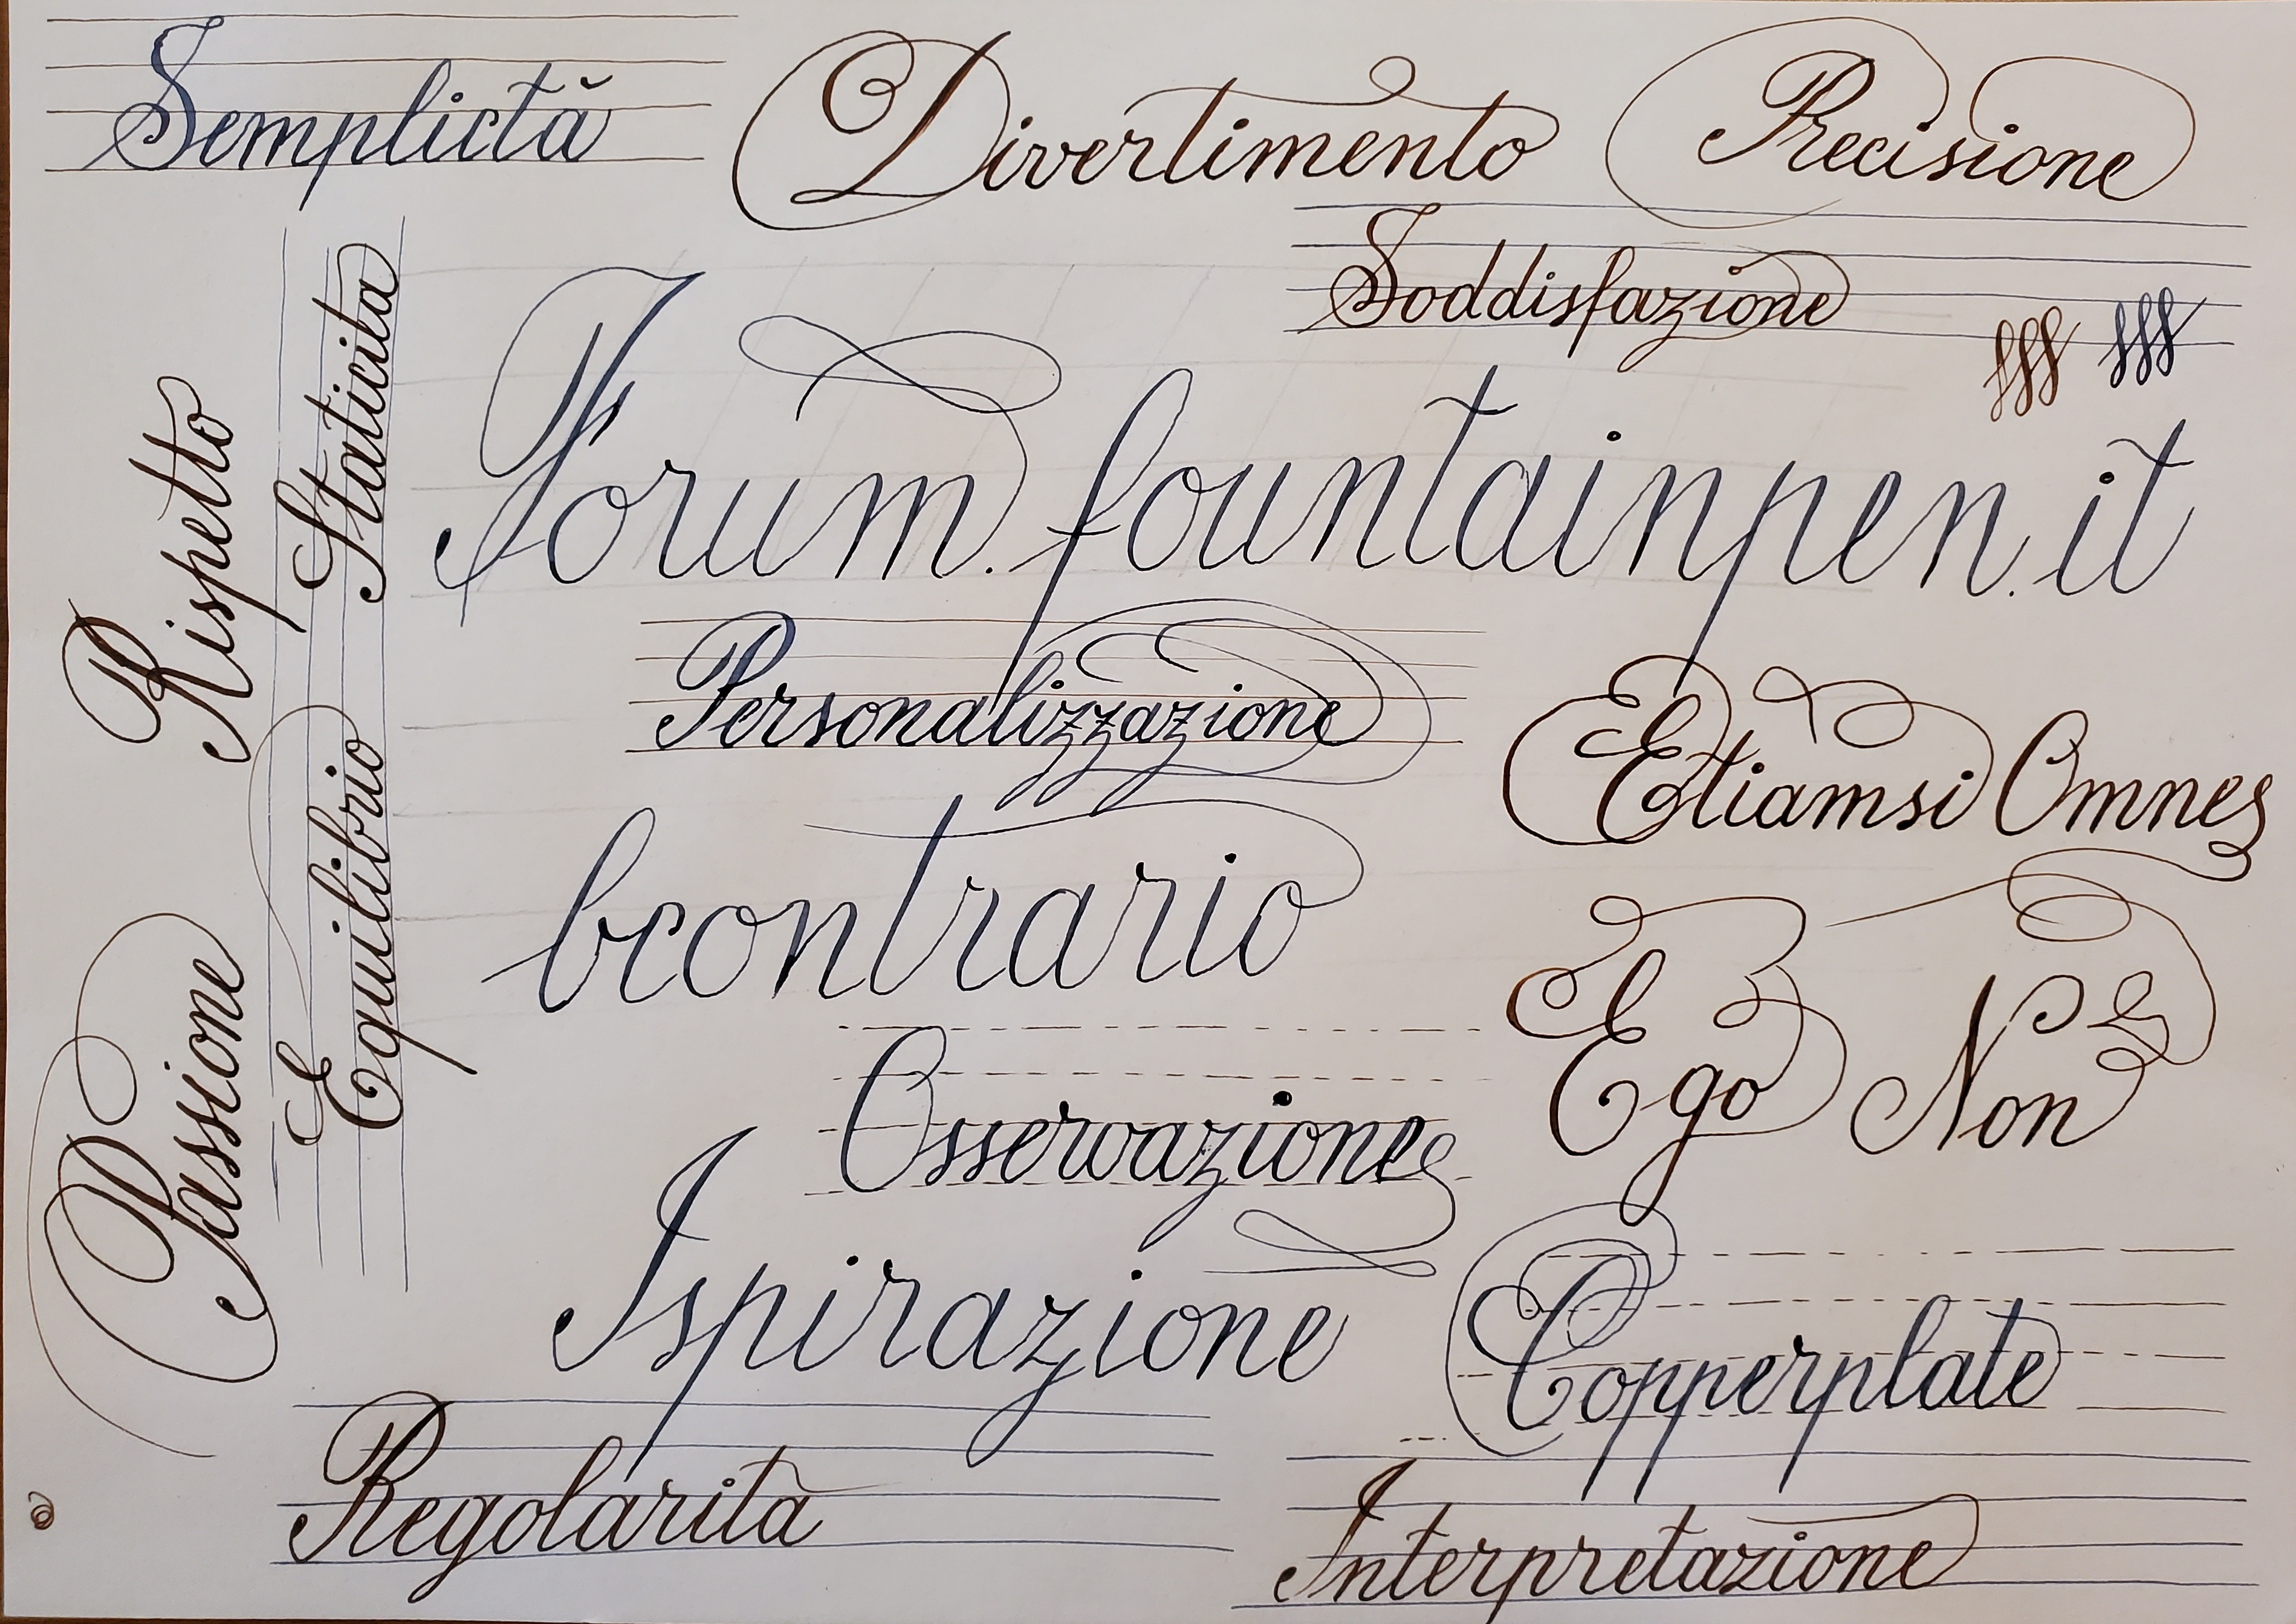 Semplictà
Divertimento
Precisione
Soddisfazione
Forum.fountainpen.it
Rispetto
Staticita
Personalizzazione
Etiamsi Omnes
Equilibrio
bcontrario
Ego Non
Passione
Osservazione
Ispirazione
Copperplate
Regolarità
Interpretazione